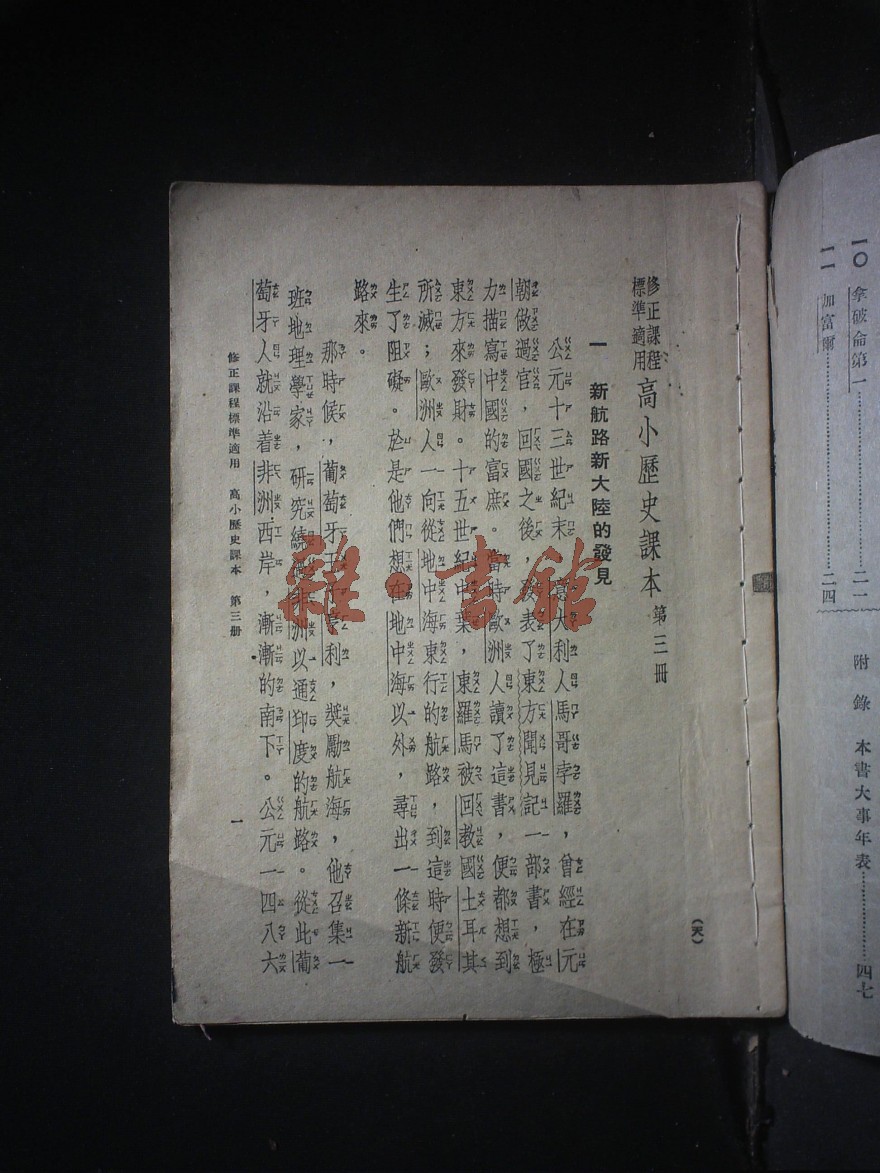 修正課程標準適用 高小歷史課本 第三冊
(天)
一 新航路新大陸的發見
公元十三世紀末，意大利人馬哥孛羅，曾經在元
朝做過官，回國之後，發表了東方聞見記一部書，極
力描寫中國的富庶。當時歐洲人讀了這書，便都想到
東方來發財。十五世紀中葉，東羅馬被回教國土耳其
所滅；歐洲人一向從地中海東行的航路，到這時便發
生了阻礙。於是他們想在地中海以外，尋出一條新航
路來。
那時候，葡萄牙王子亨利，獎勵航海，他召集一
班地理學家，研究繞過非洲以通印度的航路。從此葡
萄牙人就沿着非洲西岸，漸漸的南下。公元一四八六
修正課程標準適用 高小歷史課本 第三冊 一
一〇 拿破侖第一……二一
一一 加富爾……二四
附錄 本書大事年表……四七
雜·書館